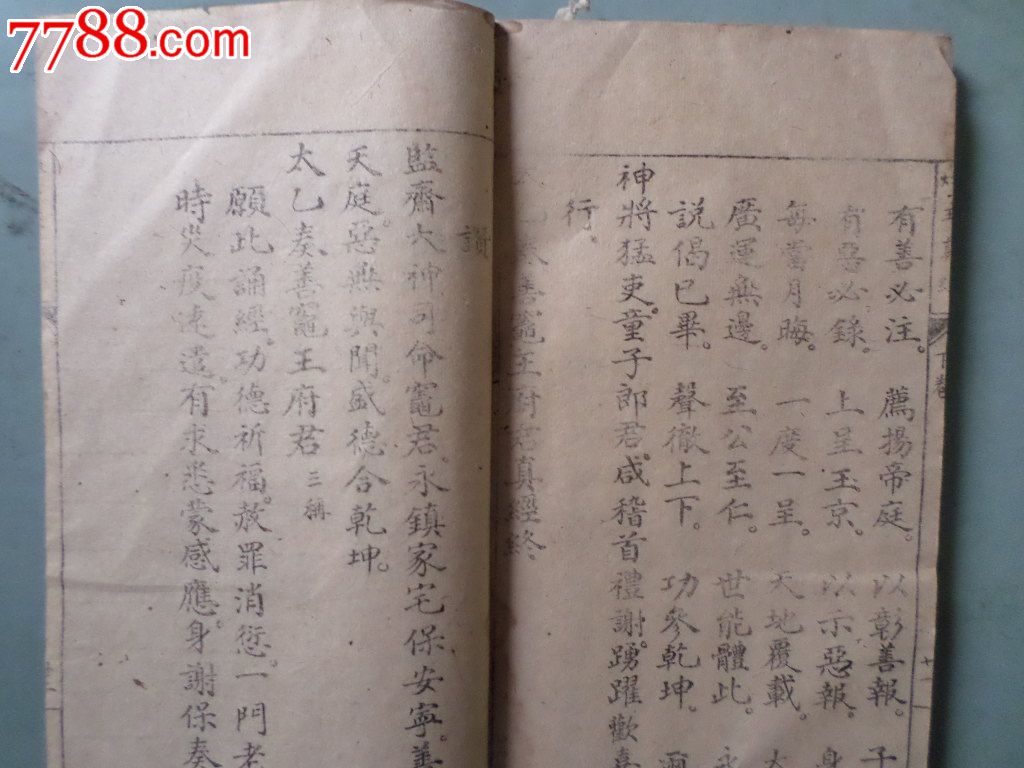 7788.com
有善必注。 薦揚帝庭。 以彰善報。 子
有惡必錄。 上呈玉京。 以示惡報。 身
每當月晦。 一度一呈。 天地覆載。
廣運無邊。 至公至仁。 世能體此。 永
說偈已畢。 聲徹上下。 功參乾坤。
神將猛吏。童子郎君。咸稽首禮謝。踴躍歡喜
行。
善竈王府君真經終。
讚
監齋大神司命竈君。永鎮家宅保安寧。善
天庭。惡無與聞。盛德合乾坤。
太乙奏善竈王府君 三稱
願此誦經。功德祈福。赦罪消愆。一門老
時災疫遠遣。有求悉蒙感應。身謝保奏
下卷